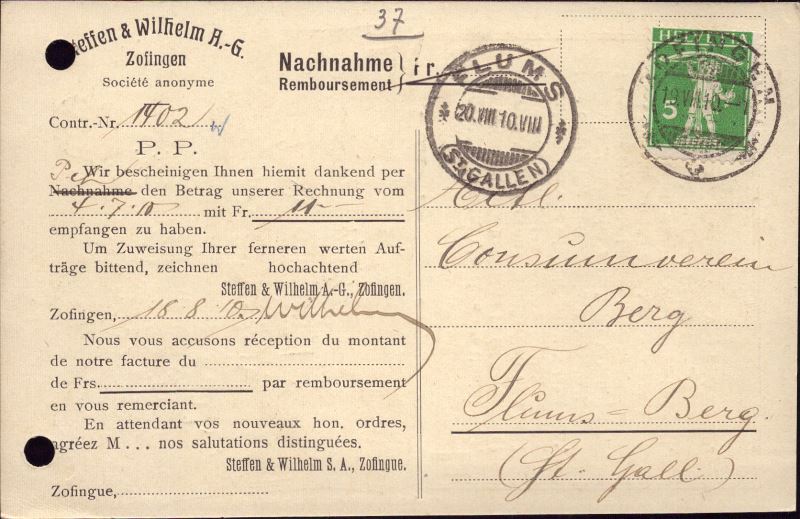 37
Steffen & Wilhelm A.-G.
Zofingen
Société anonyme
Contr.-Nr. 1402
P. P.
Wir bescheinigen Ihnen hiemit dankend per
Nachnahme den Betrag unserer Rechnung vom
4.7.10 mit Fr. 11.-
empfangen zu haben.
Um Zuweisung Ihrer ferneren werten Auf-
träge bittend, zeichnen hochachtend
Steffen & Wilhelm A.-G., Zofingen.
Zofingen, 18.8.10. Wilhelm
Nous vous accusons réception du montant
de notre facture du
de Frs. par remboursement
en vous remerciant.
En attendant vos nouveaux hon. ordres,
agréez M... nos salutations distinguées.
Steffen & Wilhelm S. A., Zofingue.
Zofingue,
Nachnahme
Remboursement
Fr.
FLUMS
20.VIII.10.VIII
(ST. GALLEN)
HELVETIA
5
ZOFINGEN
19.VIII.10.
Consumverein
Berg
Flums=Berg.
(St. Gall.)